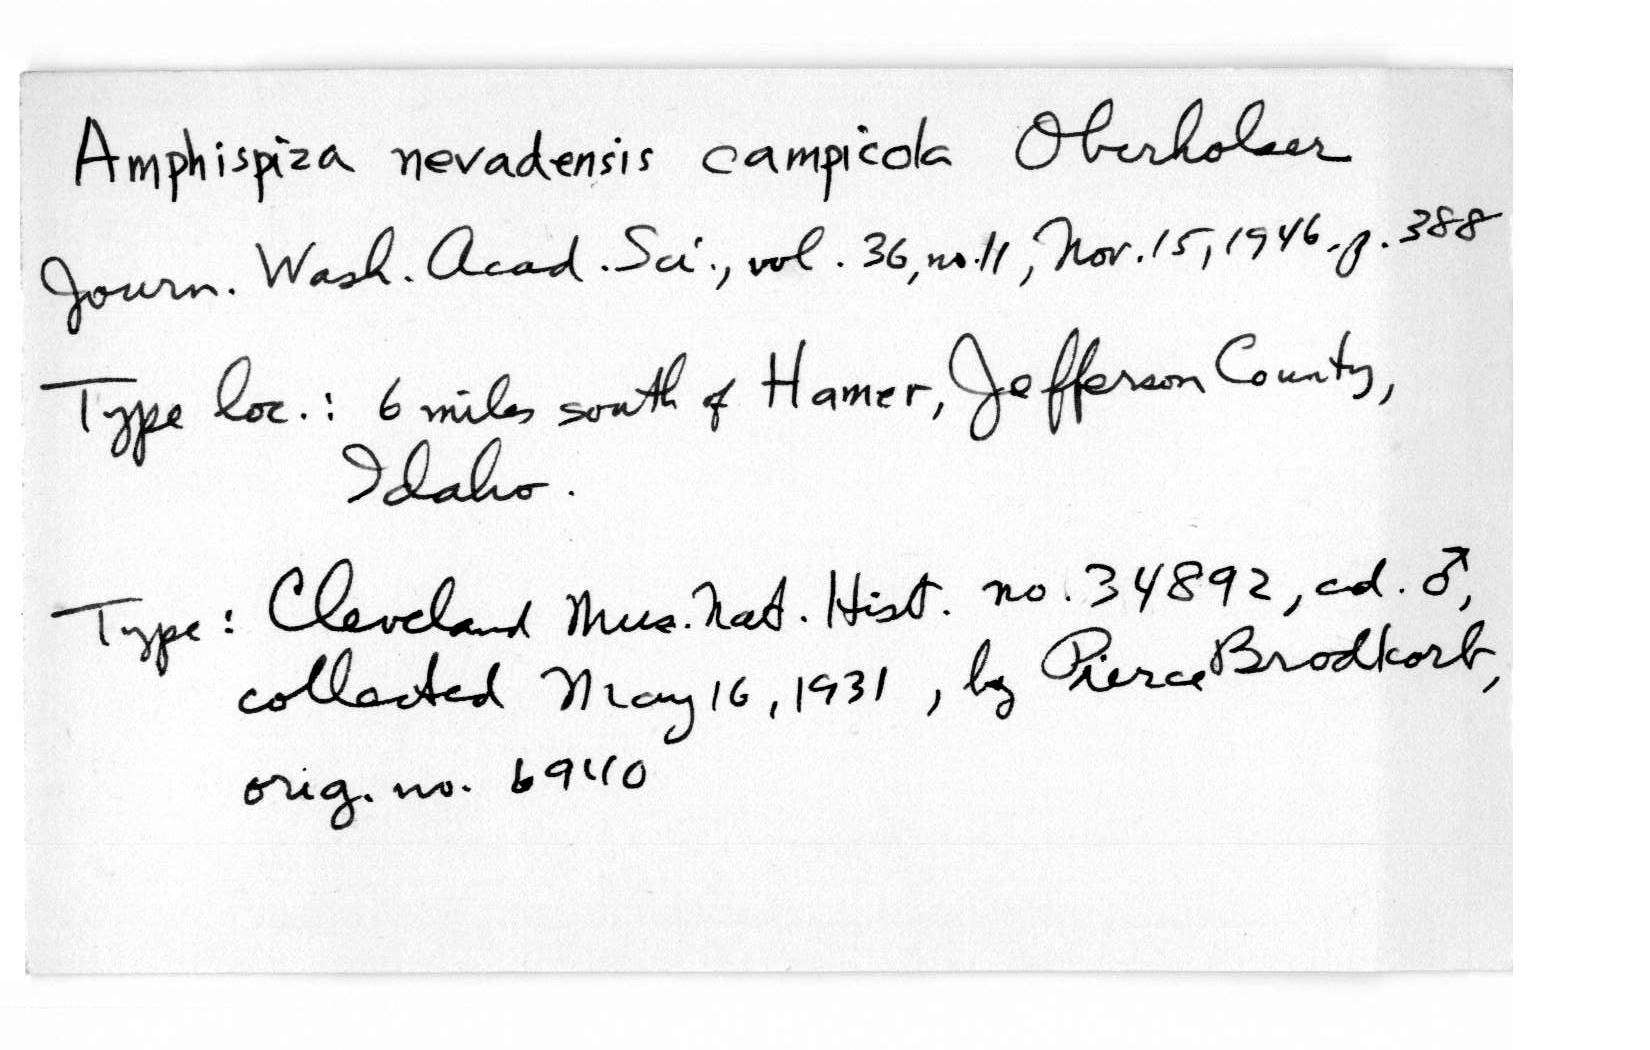 Amphispiza nevadensis campicola Oberholser
Journ. Wash. Acad. Sci., vol. 36, no. 11, Nov. 15, 1946, p. 388
Type loc.: 6 miles south of Hamer, Jefferson County,
Idaho.
Type: Cleveland Mus. Nat. Hist. no. 34892, ad. ♂,
collected May 16, 1931, by Pierce Brodkorb,
orig. no. 6940